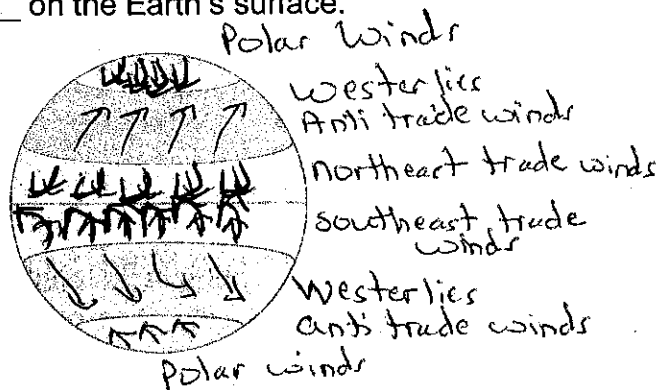 __ on the Earth's surface.
Polar Winds
Westerlies
Anti trade winds
northeast trade winds
southeast trade
winds
Westerlies
anti trade winds
Polar winds